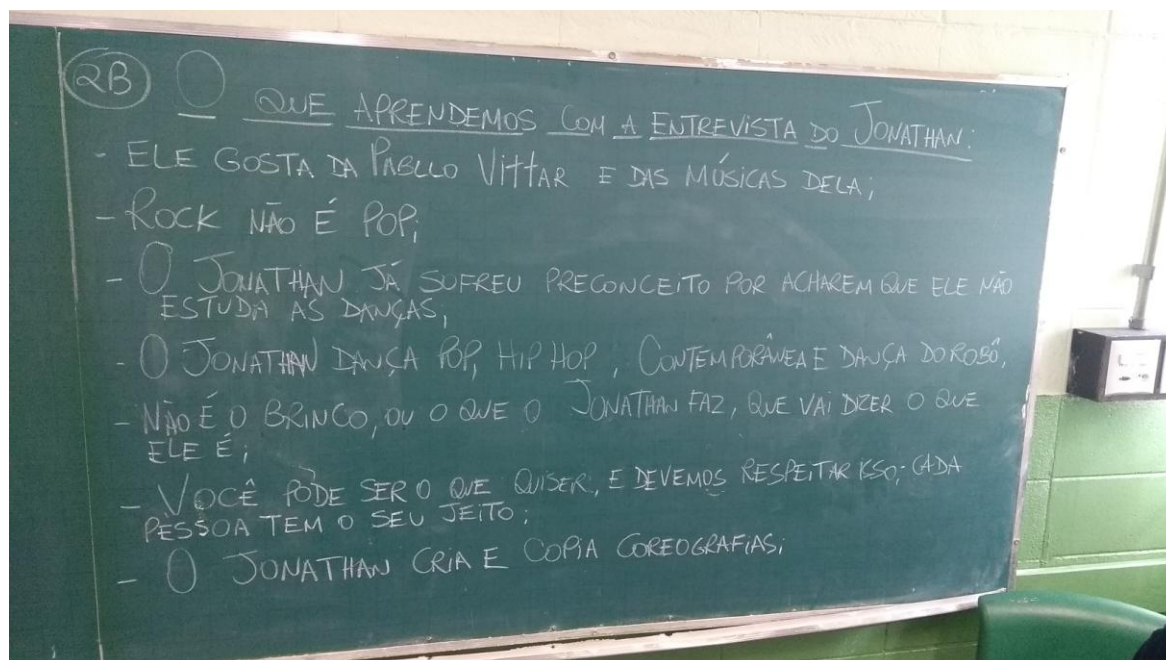 2B O QUE APRENDEMOS COM A ENTREVISTA DO JONATHAN:
- ELE GOSTA DA PABLLO VITTAR E DAS MÚSICAS DELA;
- ROCK NÃO É POP;
- O JONATHAN JÁ SOFREU PRECONCEITO POR ACHAREM QUE ELE NÃO
ESTUDA AS DANÇAS;
- O JONATHAN DANÇA POP, HIP HOP, CONTEMPORÂNEA E DANÇA DO ROBÔ;
- NÃO É O BRINCO, OU O QUE O JONATHAN FAZ, QUE VAI DIZER O QUE
ELE É;
- VOCÊ PODE SER O QUE QUISER, E DEVEMOS RESPEITAR ISSO; CADA
PESSOA TEM O SEU JEITO;
- O JONATHAN CRIA E COPIA COREOGRAFIAS;